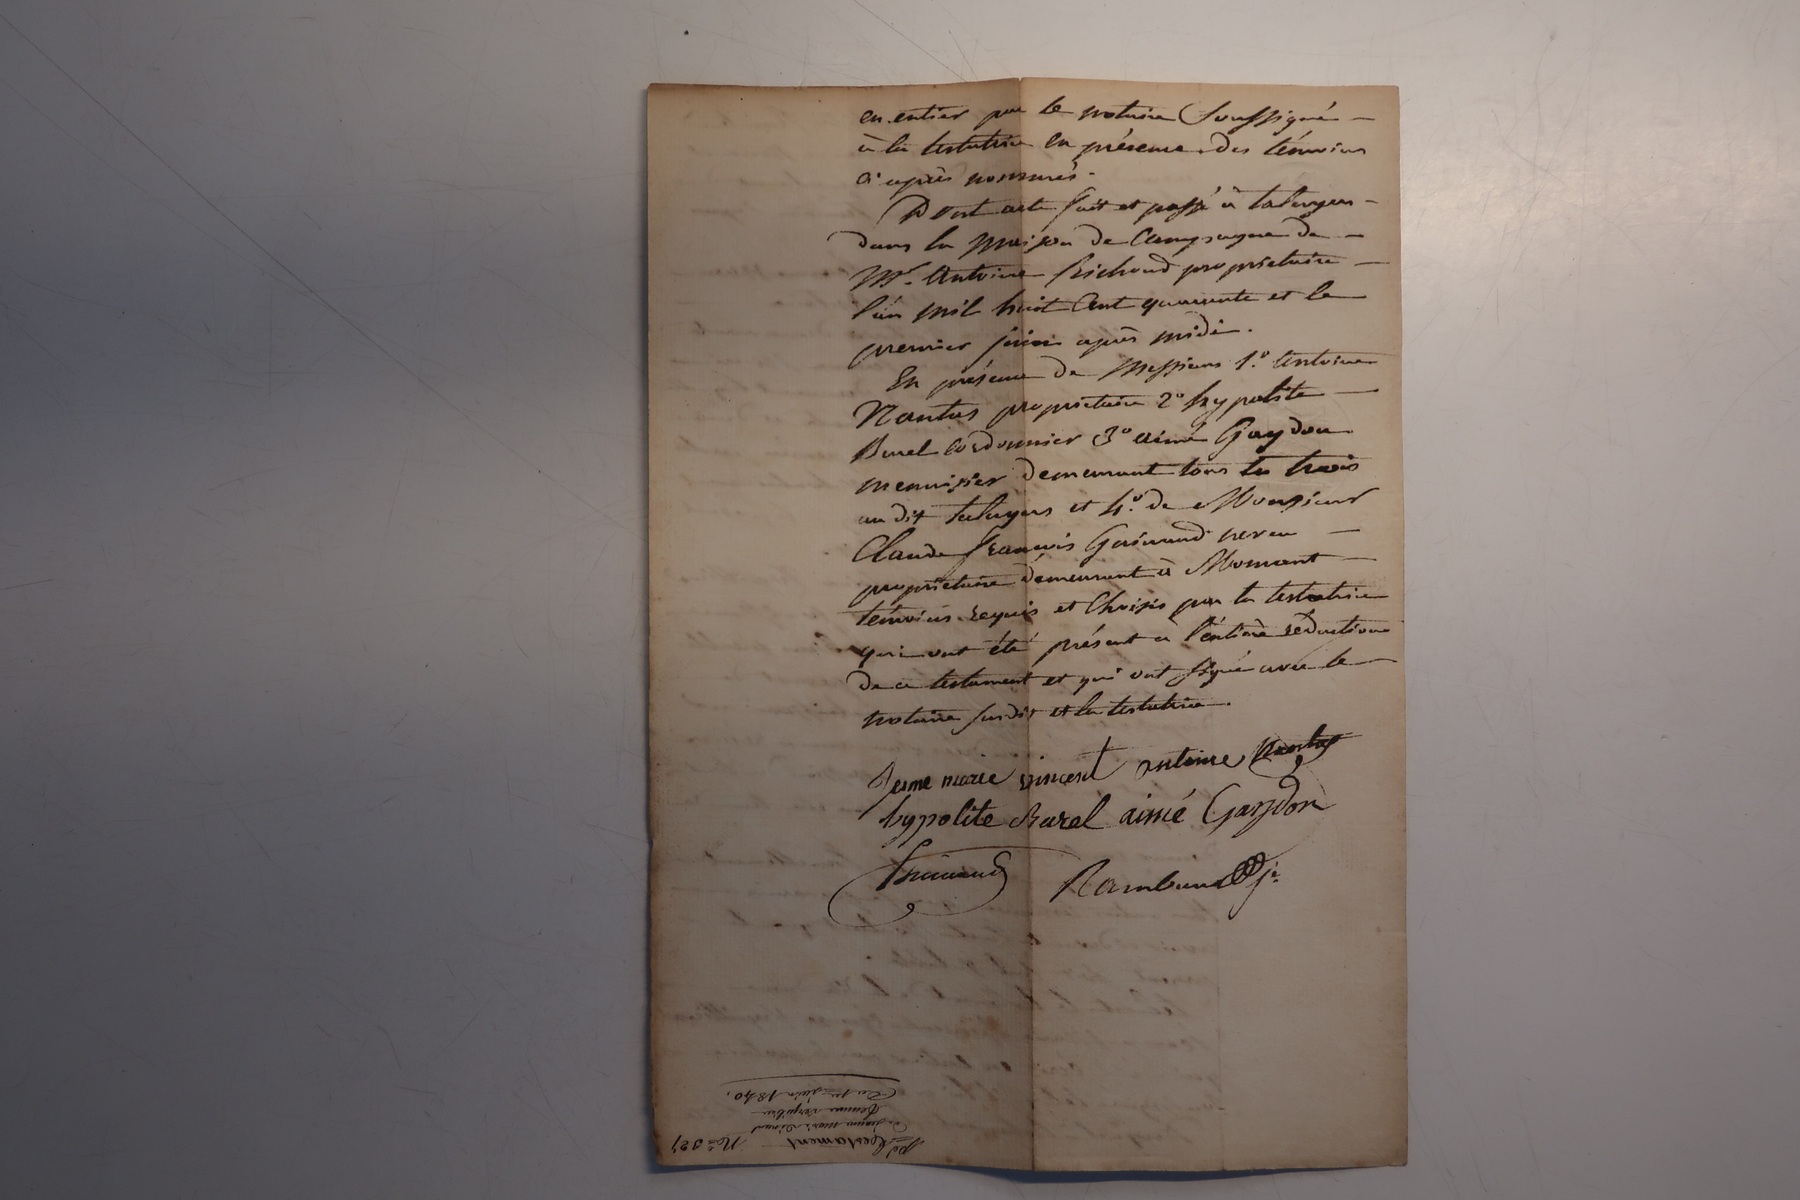 en entier par le notaire soussigné
à la testatrice en présence des témoins
ci après nommés.
Dont acte fait et passé à taluyers
dans la maison de Campagne de
Mr. Antoine Richoud propriétaire
l'an mil huit Cent quarante et le
premier juin après midi.
En présence de Messieurs 1.° Antoine
Nantas propriétaire 2° hypolite
Burel cordonnier 3° aimé Gaydon
menuisier demeurant tous les trois
au dit taluyers et 4.° de Monsieur
Claude francois Guimand neveu
propriétaire demeurant à Mornant
témoins requis et Choisis par la testatrice
qui ont été présent a l'entière rédaction
de ce testament et qui ont signé avec le
notaire susdit et la testatrice.
Jeanne marie vincent antoine Nantas
hypolite Burel aimé Gaydon
Rambaud
testament
femme
Du 1er juin 1840.